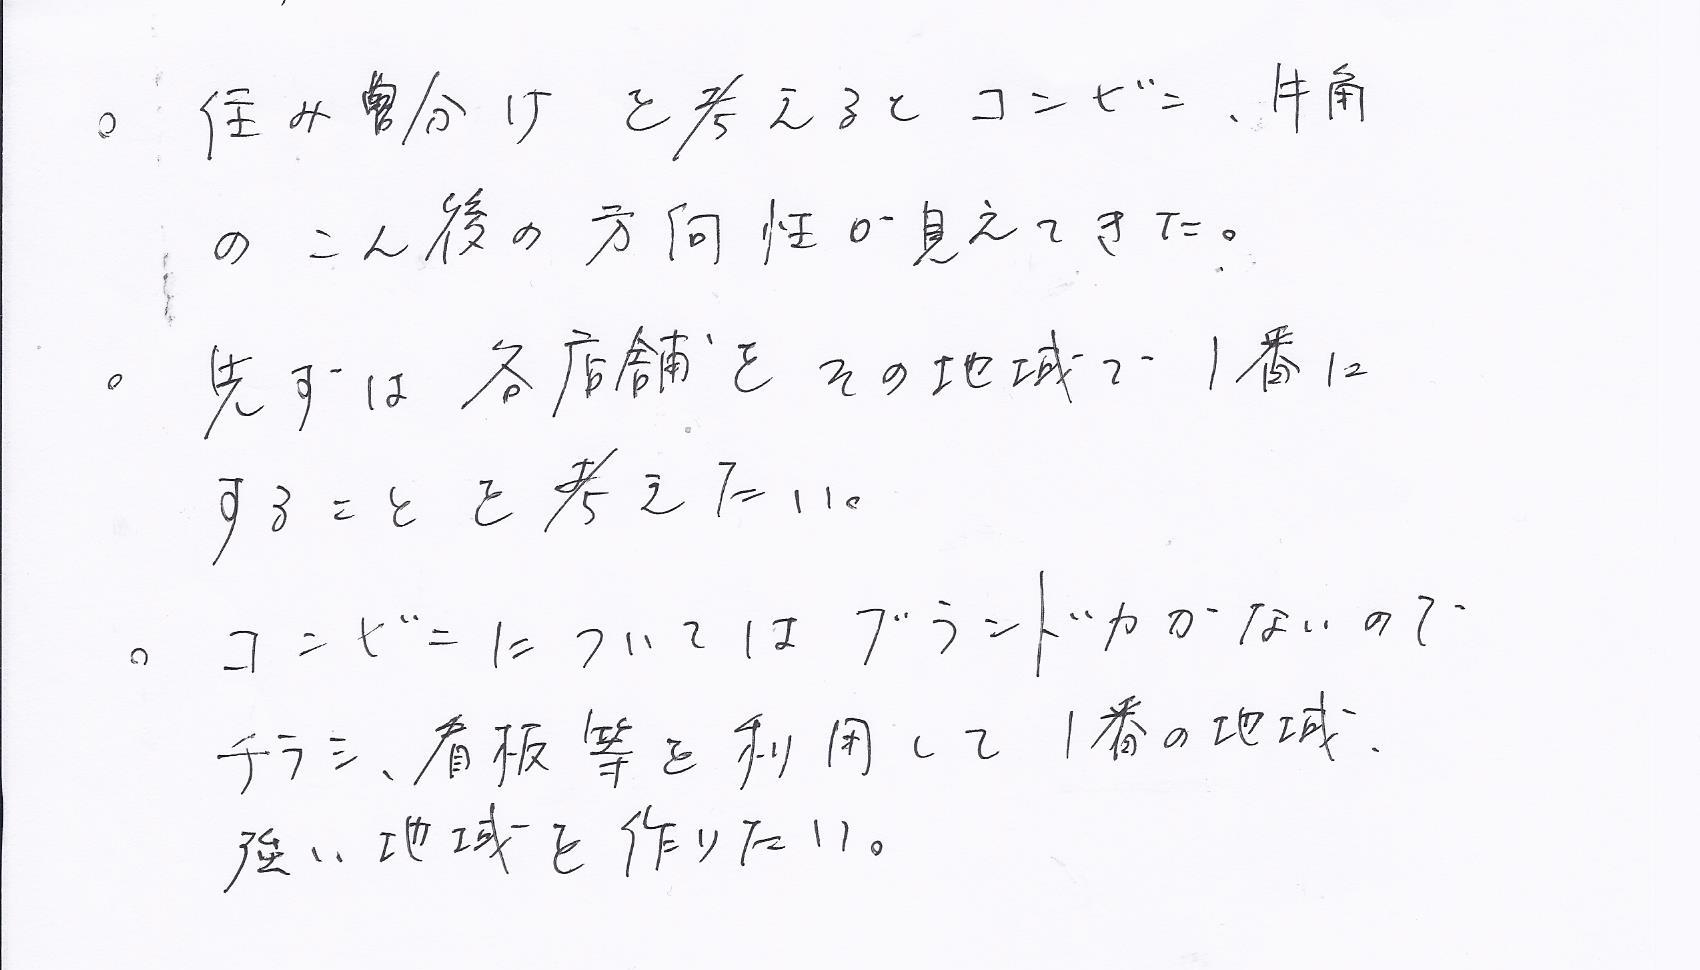 。住み分けを考えるとコンビニ、牛角
のこん後の方向性が見えてきた。
。先ずは各店舗をその地域で1番に
することを考えたい。
。コンビニについてはブランド力がないので
チラシ、看板等を利用して1番の地域、
強い地域を作りたい。